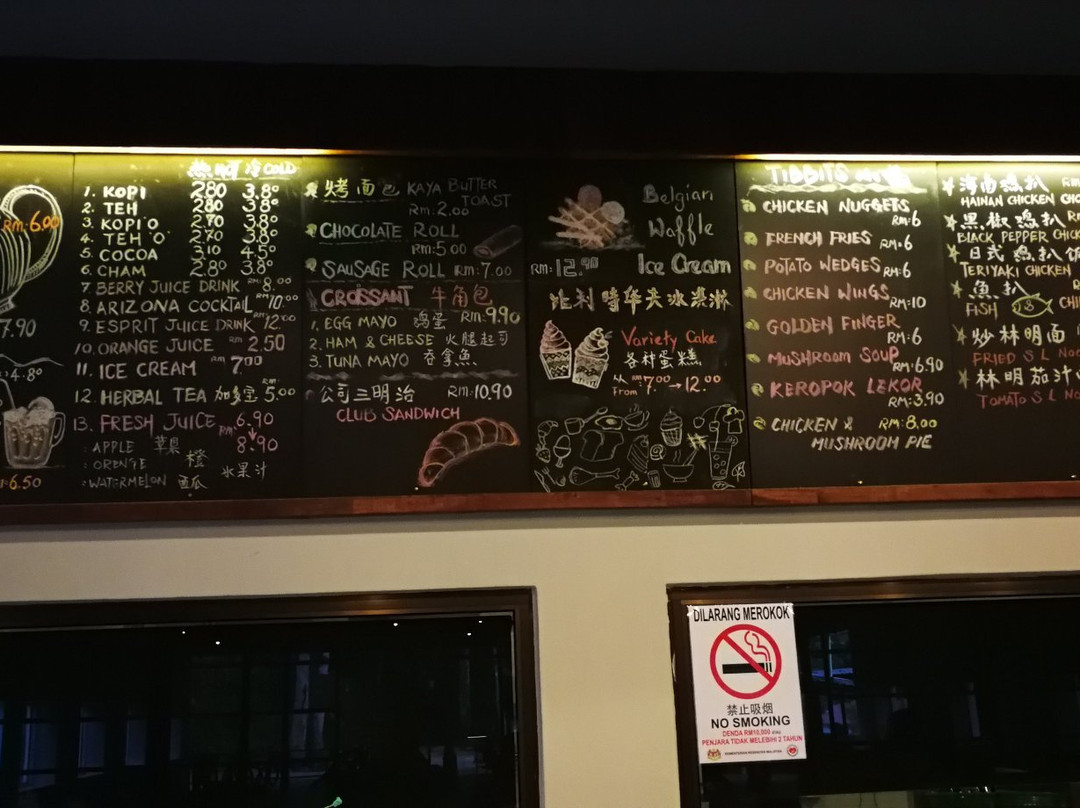 RM:6.00
7.90
4.8º
6.50
热 HOT 冷 COLD
1. KOPI 2.80 3.8º
2. TEH 2.80 3.8º
3. KOPI'O 2.70 3.8º
4. TEH 'O' 2.70 3.8º
5. COCOA 3.10 4.5º
6. CHAM 2.80 3.8º
7. BERRY JUICE DRINK RM 8.00
8. ARIZONA COCKTAIL RM 10.00
9. ESPRIT JUICE DRINK RM 12.00
10. ORANGE JUICE RM 2.50
11. ICE CREAM RM 7.00
12. HERBAL TEA 加多宝 RM 5.00
13. FRESH JUICE 6.90
RM: 8.90
: APPLE 苹果
: ORENGE 橙 水果汁
: WATERMELON 西瓜
烤面包 KAYA BUTTER
TOAST
RM:2.00
CHOCOLATE ROLL
RM:5.00
SAUSAGE ROLL RM:7.00
CROISSANT 牛角包
RM:9.90
1. EGG MAYO 鸡蛋
2. HAM & CHEESE 火腿起司
3. TUNA MAYO 吞拿魚
公司三明治 RM:10.90
CLUB SANDWICH
Belgian
Waffle
RM:12.90 Ice Cream
比利時华夫冰淇淋
Variety Cake
各种蛋糕
从 RM 7.00 → 12.00
From
TIBBITS
CHICKEN NUGGETS
RM:6
FRENCH FRIES RM:6
POTATO WEDGES RM:6
CHICKEN WINGS
RM:10
GOLDEN FINGER
RM:6
MUSHROOM SOUP
RM:6.90
KEROPOK LEKOR
RM:3.90
CHICKEN & RM:8.00
MUSHROOM PIE
海南鸡扒 RM
HAINAN CHICKEN CHO
黑椒鸡扒 RM
BLACK PEPPER CHICK
日式鸡扒饭
TERIYAKI CHICKEN
魚扒
FISH CHI
炒林明面
FRIED S L NOO
林明茄汁
TOMATO S L NO
DILARANG MEROKOK
禁止吸烟
NO SMOKING
DENDA RM10,000 atau
PENJARA TIDAK MELEBIHI 2 TAHUN
KEMENTERIAN KESIHATAN MALAYSIA